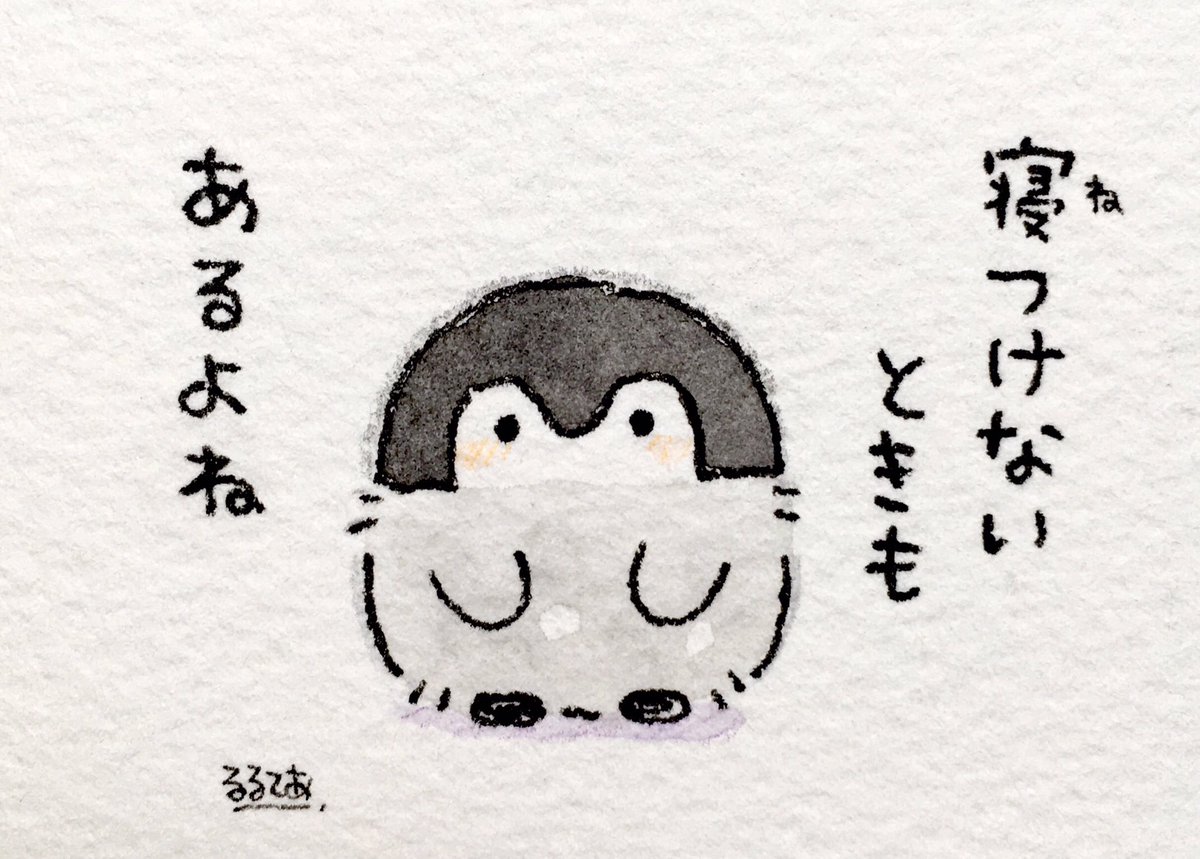 寝つけない
ね
ときも
あるよね
るるてあ